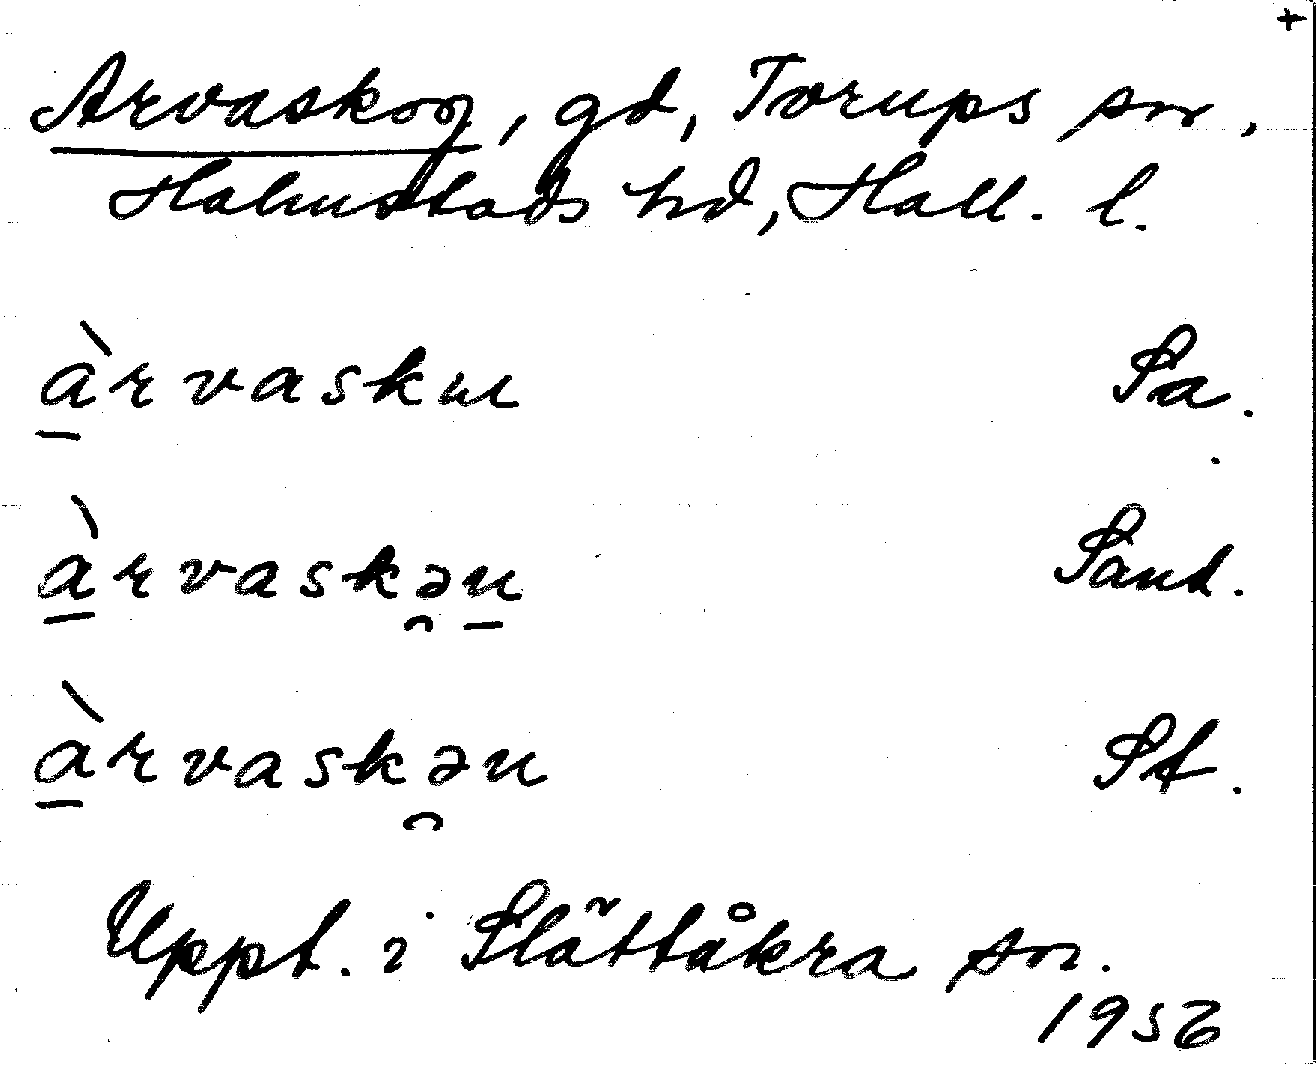 +
Arvaskog, gd, Torups sn,
Halmstads hd, Hall. l.
à̱rvaskuı Sa.
à̱rvaskə̯u̱ Sand.
à̱rvaskə̯u St.
Uppt. i Slättåkra sn.
1956